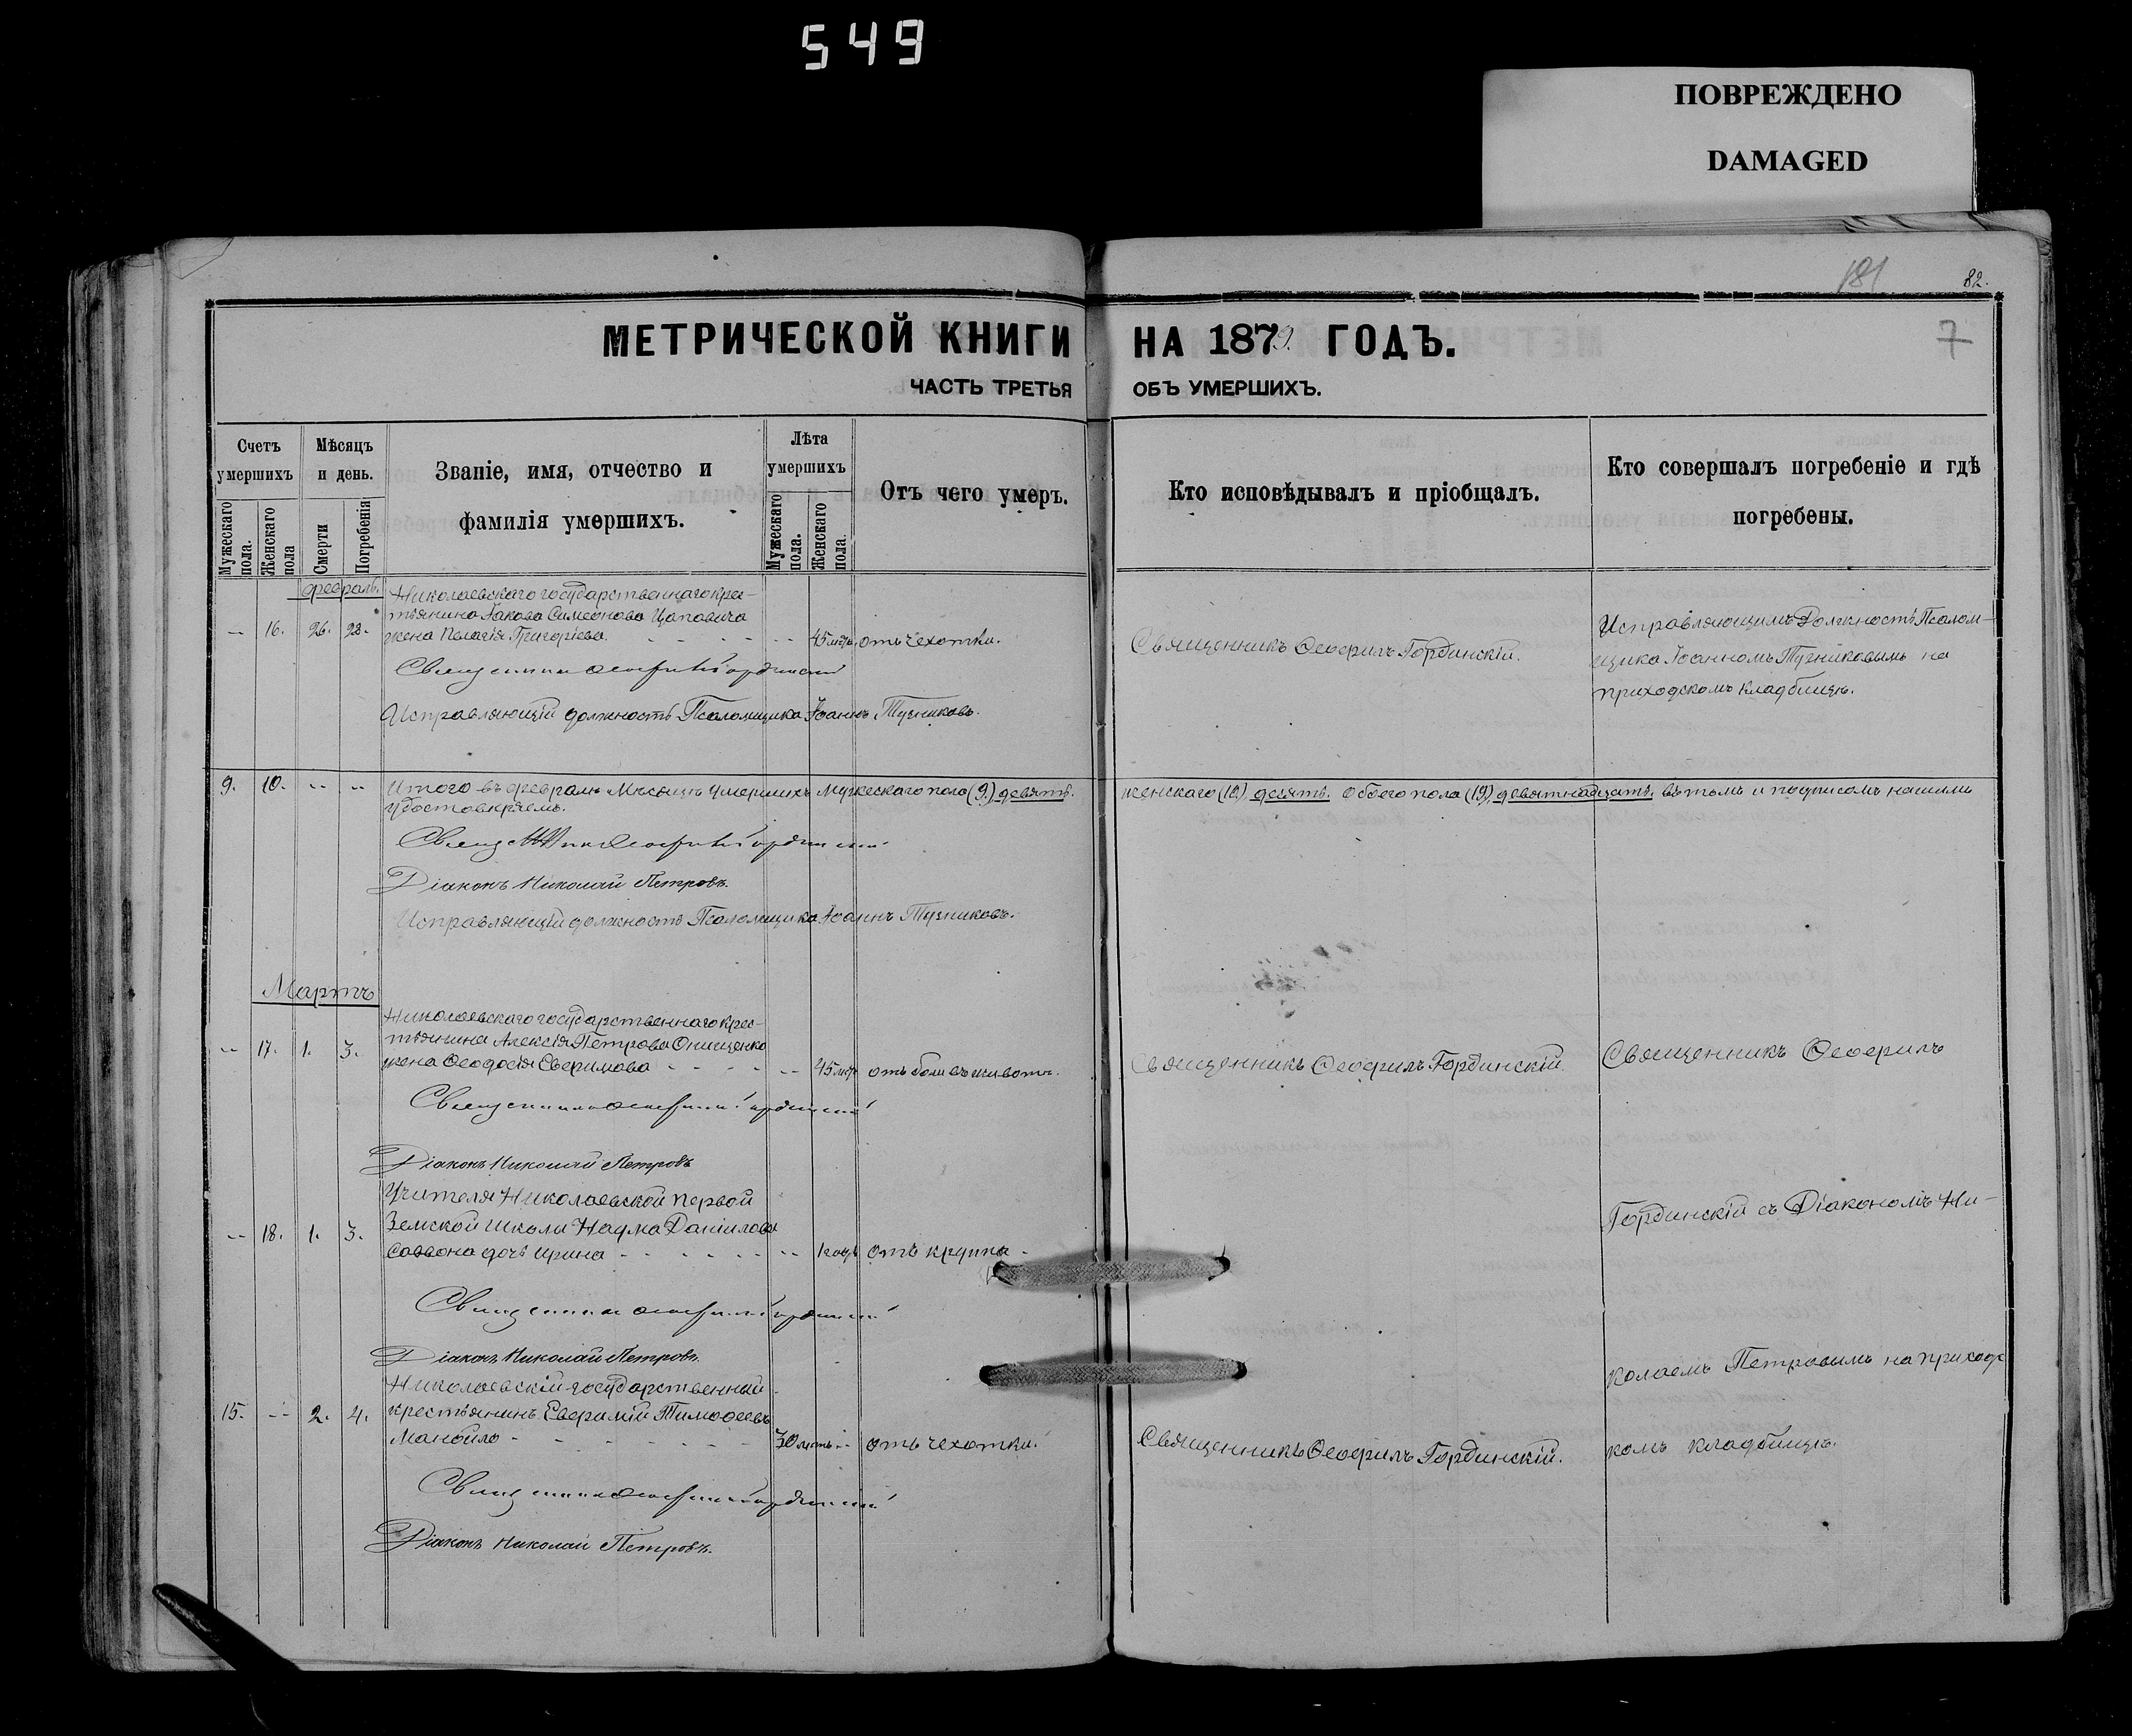 549
ПОВРЕЖДЕНО
DAMAGED
181
82.
7
МЕТРИЧЕСКОЙ КНИГИ НА 1879. ГОДЪ.
ЧАСТЬ ТРЕТЬЯ ОБЪ УМЕРШИХЪ.
Счетъ умершихъ
Мужескаго пола.
Женскаго пола
Мѣсяцъ и день.
Смерти
Погребенія
Званіе, имя, отчество и
фамилія умершихъ.
Лѣта умершихъ
Мужескаго пола.
Женскаго пола.
Отъ чего умеръ.
Кто исповѣдывалъ и пріобщалъ.
Кто совершалъ погребеніе и гдѣ
погребены.
февраль.
Николаевскаго государственнаго крес-
тьянина Іакова Симеонова Цаповича
-- 16. 26. 28. жена Пелагія Григоріева - - - -- 45 лѣтъ отъ чехотки.
Священникъ Ѳеофилъ Гординскій.
Исправляющимъ Должность Псалом-
щика Іоанномъ Тузниковымъ на
приходскомъ кладбищѣ.
Священникъ Ѳеофилъ Гординскій
Исправляющій должность Псаломщика Іоаннъ Тузниковъ.
9. 10. -- -- Итого въ февралѣ Мѣсяцѣ умершихъ Мужескаго пола (9.) девять. женскаго (10.) десять. Обоего пола (19) девятнадцать. въ томъ и подписомъ нашимъ
удостовѣряемъ.
Священникъ Ѳеофилъ Гординскій
Діаконъ Николай Петровъ.
Исправляющій должность Псаломщика Іоаннъ Тузниковъ.
Мартъ
Николаевскаго государственнаго крес-
тьянина Алексія Петрова Онищенко
-- 17. 1. 3. жена Ѳеодосія Евфимова - - - - -- 45 лѣтъ отъ боли въ животѣ.
Священникъ Ѳеофилъ Гординскій.
Священникъ Ѳеофилъ
Священникъ Ѳеофилъ Гординскій
Діаконъ Николай Петровъ
Учителя Николаевской первой
Земской школы Наума Даніилова
-- 18. 1. 3. Саввона дочь Ирина - - - - - - -- 1 годъ отъ крупа -
Гординскій съ Діакономъ Ни-
Священникъ Ѳеофилъ Гординскій
Діаконъ Николай Петровъ.
колаемъ Петровымъ на приходс
Николаевскій государственный
15. -- 2. 4. крестьянинъ Евфимій Тимоѳеевъ
Манойло - - - - - - - 30 лѣтъ -- отъ чехотки.
Священникъ Ѳеофилъ Гординскій.
комъ кладбищѣ.
Священникъ Ѳеофилъ Гординскій
Діаконъ Николай Петровъ.